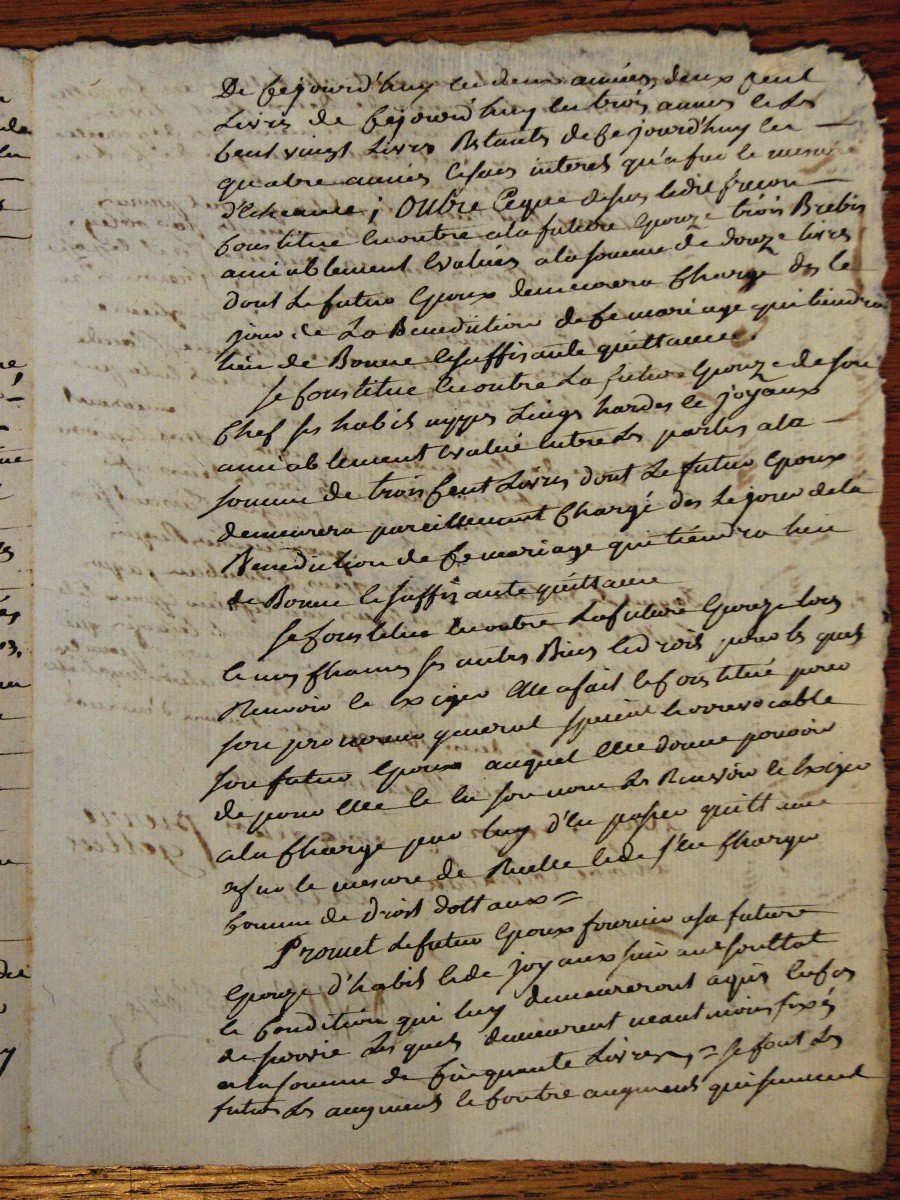 De cejourd'huy en deux années, deux cent
Livres de cejourd'huy en trois années & les
cent vingt Livres Restants de cejourd'huy en
quatre années & sans interet qu'a fur & mesure
d'echeance; Outre Ceque dessus ledit
Constitue en outre ala future Epouze trois Brebis
amiablement Evalués ala somme de douze Livres
dont Le futur Epoux demeurera Chargé des le
jour de La Benediction de ce mariage qui tiendra
lieu de Bonne & suffisante quittance.
Se Constitue en outre La future Epouze de son
Chef ses habits nyppes Linges hardes & joyaux
amiablement Evalué entre Les parties ala
somme de trois Cent Livres dont Le futur Epoux
demeurera pareillement Chargé des Le jour de la
Benediction de ce mariage qui tiendra lieu
de Bonne & suffisante quittance
Se Constitue en outre La future Epouze tous
& uns chacuns ses autres Biens & droits pour les quels
Recevoir & Exiger Elle a fait & Constitué pour
son procureur general special & irrevocable
son futur Epoux auquel Elle donne pouvoir
de pour Elle & en son nom Les Recevoir & Exiger
ala Charge par luy d'en passer quittance
afur & mesure de Recette & de s'en Charger
Comme de droit dottaux =
Promet Le futur Epoux fournir a sa future
Epouze d'habits & de joyaux suivant son etat
& Condition qui luy demeureront aquis en cas
de survie Les quels demeurent neantmoins fixés
ala somme de Cinquante Livres, = Se font Les
futurs Les augment & Contre augment